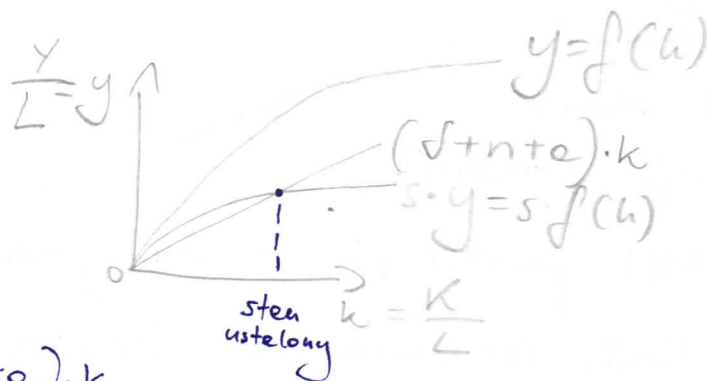 Y/L = y
y = f(k)
(δ+n+a)·k
s·y = s·f(k)
0
stan
ustalony
k = K/L
)·k